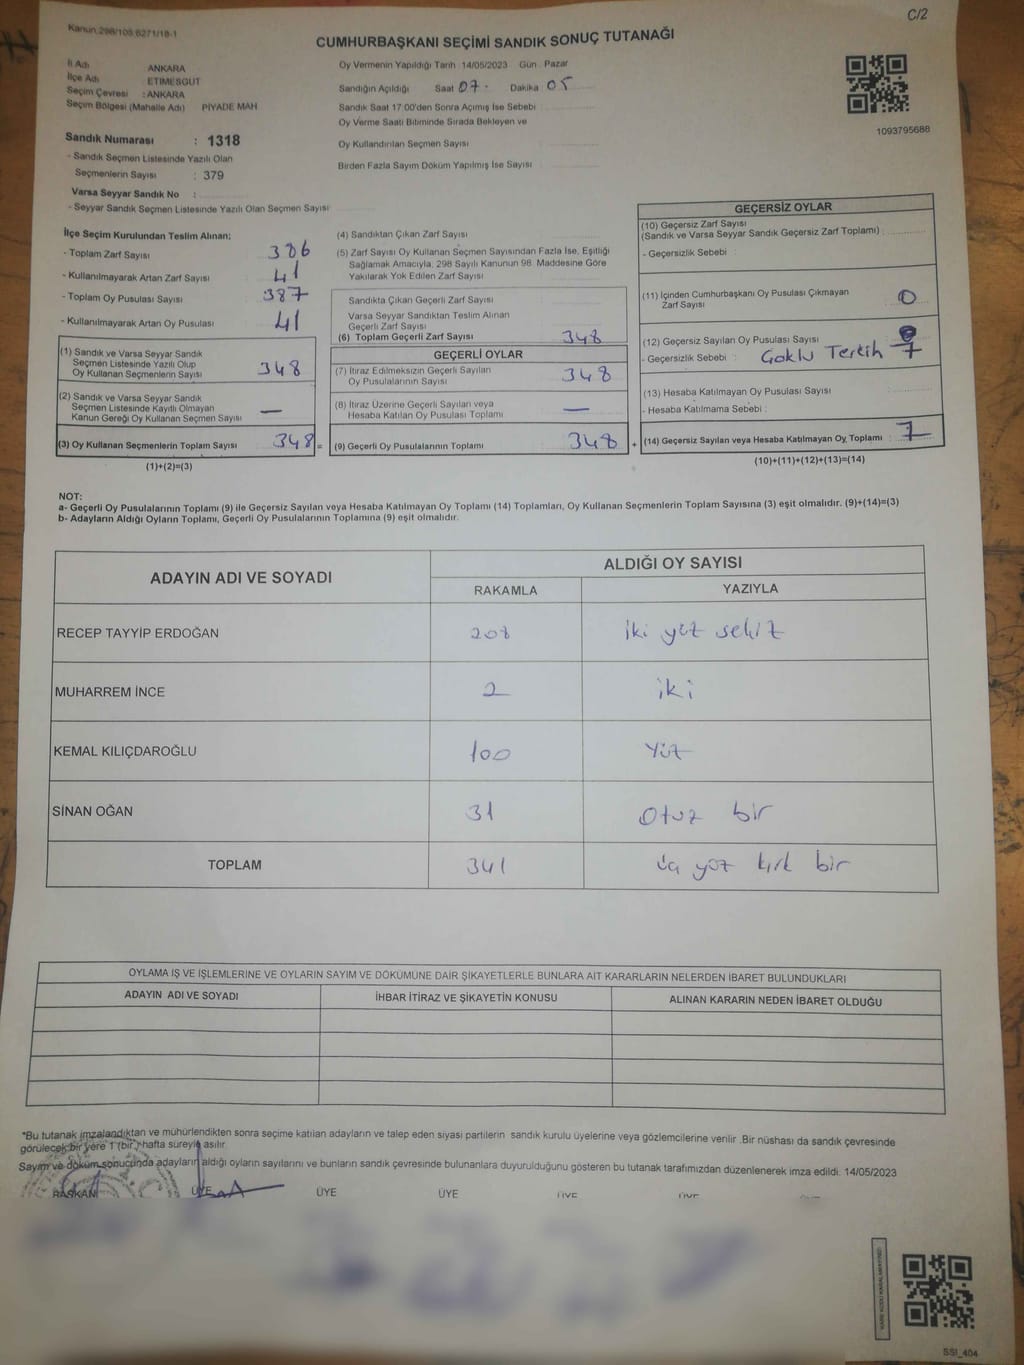 C/2
Kanun:298/105,6271/18-1
CUMHURBAŞKANI SEÇİMİ SANDIK SONUÇ TUTANAĞI
İl Adı ANKARA
İlçe Adı ETİMESGUT
Seçim Çevresi : ANKARA
Seçim Bölgesi (Mahalle Adı) PİYADE MAH
Oy Vermenin Yapıldığı Tarih : 14/05/2023 Gün : Pazar
Sandığın Açıldığı Saat 07 Dakika 05
Sandık Saat 17:00'den Sonra Açımış İse Sebebi
Oy Verme Saati Bitiminde Sırada Bekleyen ve
Oy Kullandırılan Seçmen Sayısı
Birden Fazla Sayım Döküm Yapılmış İse Sayısı
1093795688
Sandık Numarası : 1318
- Sandık Seçmen Listesinde Yazılı Olan
Seçmenlerin Sayısı : 379
Varsa Seyyar Sandık No :
- Seyyar Sandık Seçmen Listesinde Yazılı Olan Seçmen Sayısı
İlçe Seçim Kurulundan Teslim Alınan;
- Toplam Zarf Sayısı 386
- Kullanılmayarak Artan Zarf Sayısı 41
- Toplam Oy Pusulası Sayısı 387
- Kullanılmayarak Artan Oy Pusulası 41
(1) Sandık ve Varsa Seyyar Sandık
Seçmen Listesinde Yazılı Olup
Oy Kullanan Seçmenlerin Sayısı 348
(2) Sandık ve Varsa Seyyar Sandık
Seçmen Listesinde Kayıtlı Olmayan
Kanun Gereği Oy Kullanan Seçmen Sayısı —
(3) Oy Kullanan Seçmenlerin Toplam Sayısı 348 =
(1)+(2)=(3)
(4) Sandıktan Çıkan Zarf Sayısı
(5) Zarf Sayısı Oy Kullanan Seçmen Sayısından Fazla İse, Eşitliği
Sağlamak Amacıyla, 298 Sayılı Kanunun 98. Maddesine Göre
Yakılarak Yok Edilen Zarf Sayısı
Sandıkta Çıkan Geçerli Zarf Sayısı
Varsa Seyyar Sandıktan Teslim Alınan
Geçerli Zarf Sayısı
(6) Toplam Geçerli Zarf Sayısı 348
GEÇERLİ OYLAR
(7) İtiraz Edilmeksizin Geçerli Sayılan
Oy Pusulalarının Sayısı 348
(8) İtiraz Üzerine Geçerli Sayılan veya
Hesaba Katılan Oy Pusulası Toplamı —
(9) Geçerli Oy Pusulalarının Toplamı 348 +
GEÇERSİZ OYLAR
(10) Geçersiz Zarf Sayısı
(Sandık ve Varsa Seyyar Sandık Geçersiz Zarf Toplamı) :
- Geçersizlik Sebebi
(11) İçinden Cumhurbaşkanı Oy Pusulası Çıkmayan
Zarf Sayısı 0
(12) Geçersiz Sayılan Oy Pusulası Sayısı 7
- Geçersizlik Sebebi : Çoklu Tercih
(13) Hesaba Katılmayan Oy Pusulası Sayısı
- Hesaba Katılmama Sebebi :
(14) Geçersiz Sayılan veya Hesaba Katılmayan Oy Toplamı : 7
(10)+(11)+(12)+(13)=(14)
NOT:
a- Geçerli Oy Pusulalarının Toplamı (9) ile Geçersiz Sayılan veya Hesaba Katılmayan Oy Toplamı (14) Toplamları, Oy Kullanan Seçmenlerin Toplam Sayısına (3) eşit olmalıdır. (9)+(14)=(3)
b- Adayların Aldığı Oyların Toplamı, Geçerli Oy Pusulalarının Toplamına (9) eşit olmalıdır.
ADAYIN ADI VE SOYADI ALDIĞI OY SAYISI
RAKAMLA YAZIYLA
RECEP TAYYİP ERDOĞAN 208 iki yüz sekiz
MUHARREM İNCE 2 iki
KEMAL KILIÇDAROĞLU 100 Yüz
SİNAN OĞAN 31 Otuz bir
TOPLAM 341 üç yüz kırk bir
OYLAMA İŞ VE İŞLEMLERİNE VE OYLARIN SAYIM VE DÖKÜMÜNE DAİR ŞİKAYETLERLE BUNLARA AİT KARARLARIN NELERDEN İBARET BULUNDUKLARI
ADAYIN ADI VE SOYADI İHBAR İTİRAZ VE ŞİKAYETİN KONUSU ALINAN KARARIN NEDEN İBARET OLDUĞU
*Bu tutanak imzalandıktan ve mühürlendikten sonra seçime katılan adayların ve talep eden siyasi partilerin sandık kurulu üyelerine veya gözlemcilerine verilir .Bir nüshası da sandık çevresinde
görülecek bir yere 1 (bir) hafta süreyle asılır.
Sayım ve döküm sonucunda adayların aldığı oyların sayılarını ve bunların sandık çevresinde bulunanlara duyurulduğunu gösteren bu tutanak tarafımızdan düzenlenerek imza edildi. 14/05/2023
BAŞKAN ÜYE ÜYE ÜYE ÜYE ÜYE
SSI_404